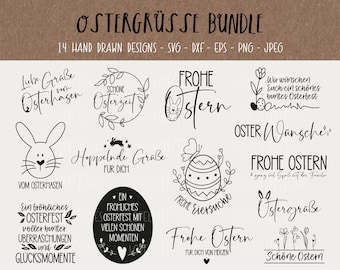 OSTERGRÜSSE BUNDLE
14 HAND DRAWN DESIGNS - SVG - DXF - EPS - PNG - JPEG
Liebe Grüße
vom Osterhasen
SCHÖNE
Osterzeit
FROHE
Ostern
Wir wünschen
Euch ein schönes
buntes Osterfest
VOM OSTERHASEN
Hoppelnde Grüße
FÜR DICH
Frohe Eiersuche
OSTER Wünsche
FROHE OSTERN
Ein fröhliches
OSTERFEST
voller bunter
ÜBERRASCHUNGEN
und
GLÜCKSMOMENTE
EIN
FRÖHLICHES
OSTERFEST MIT
VIELEN SCHÖNEN
MOMENTEN
Frohe Ostern
FÜR DICH VON HERZEN
Ostergrüße
Schöne Ostern